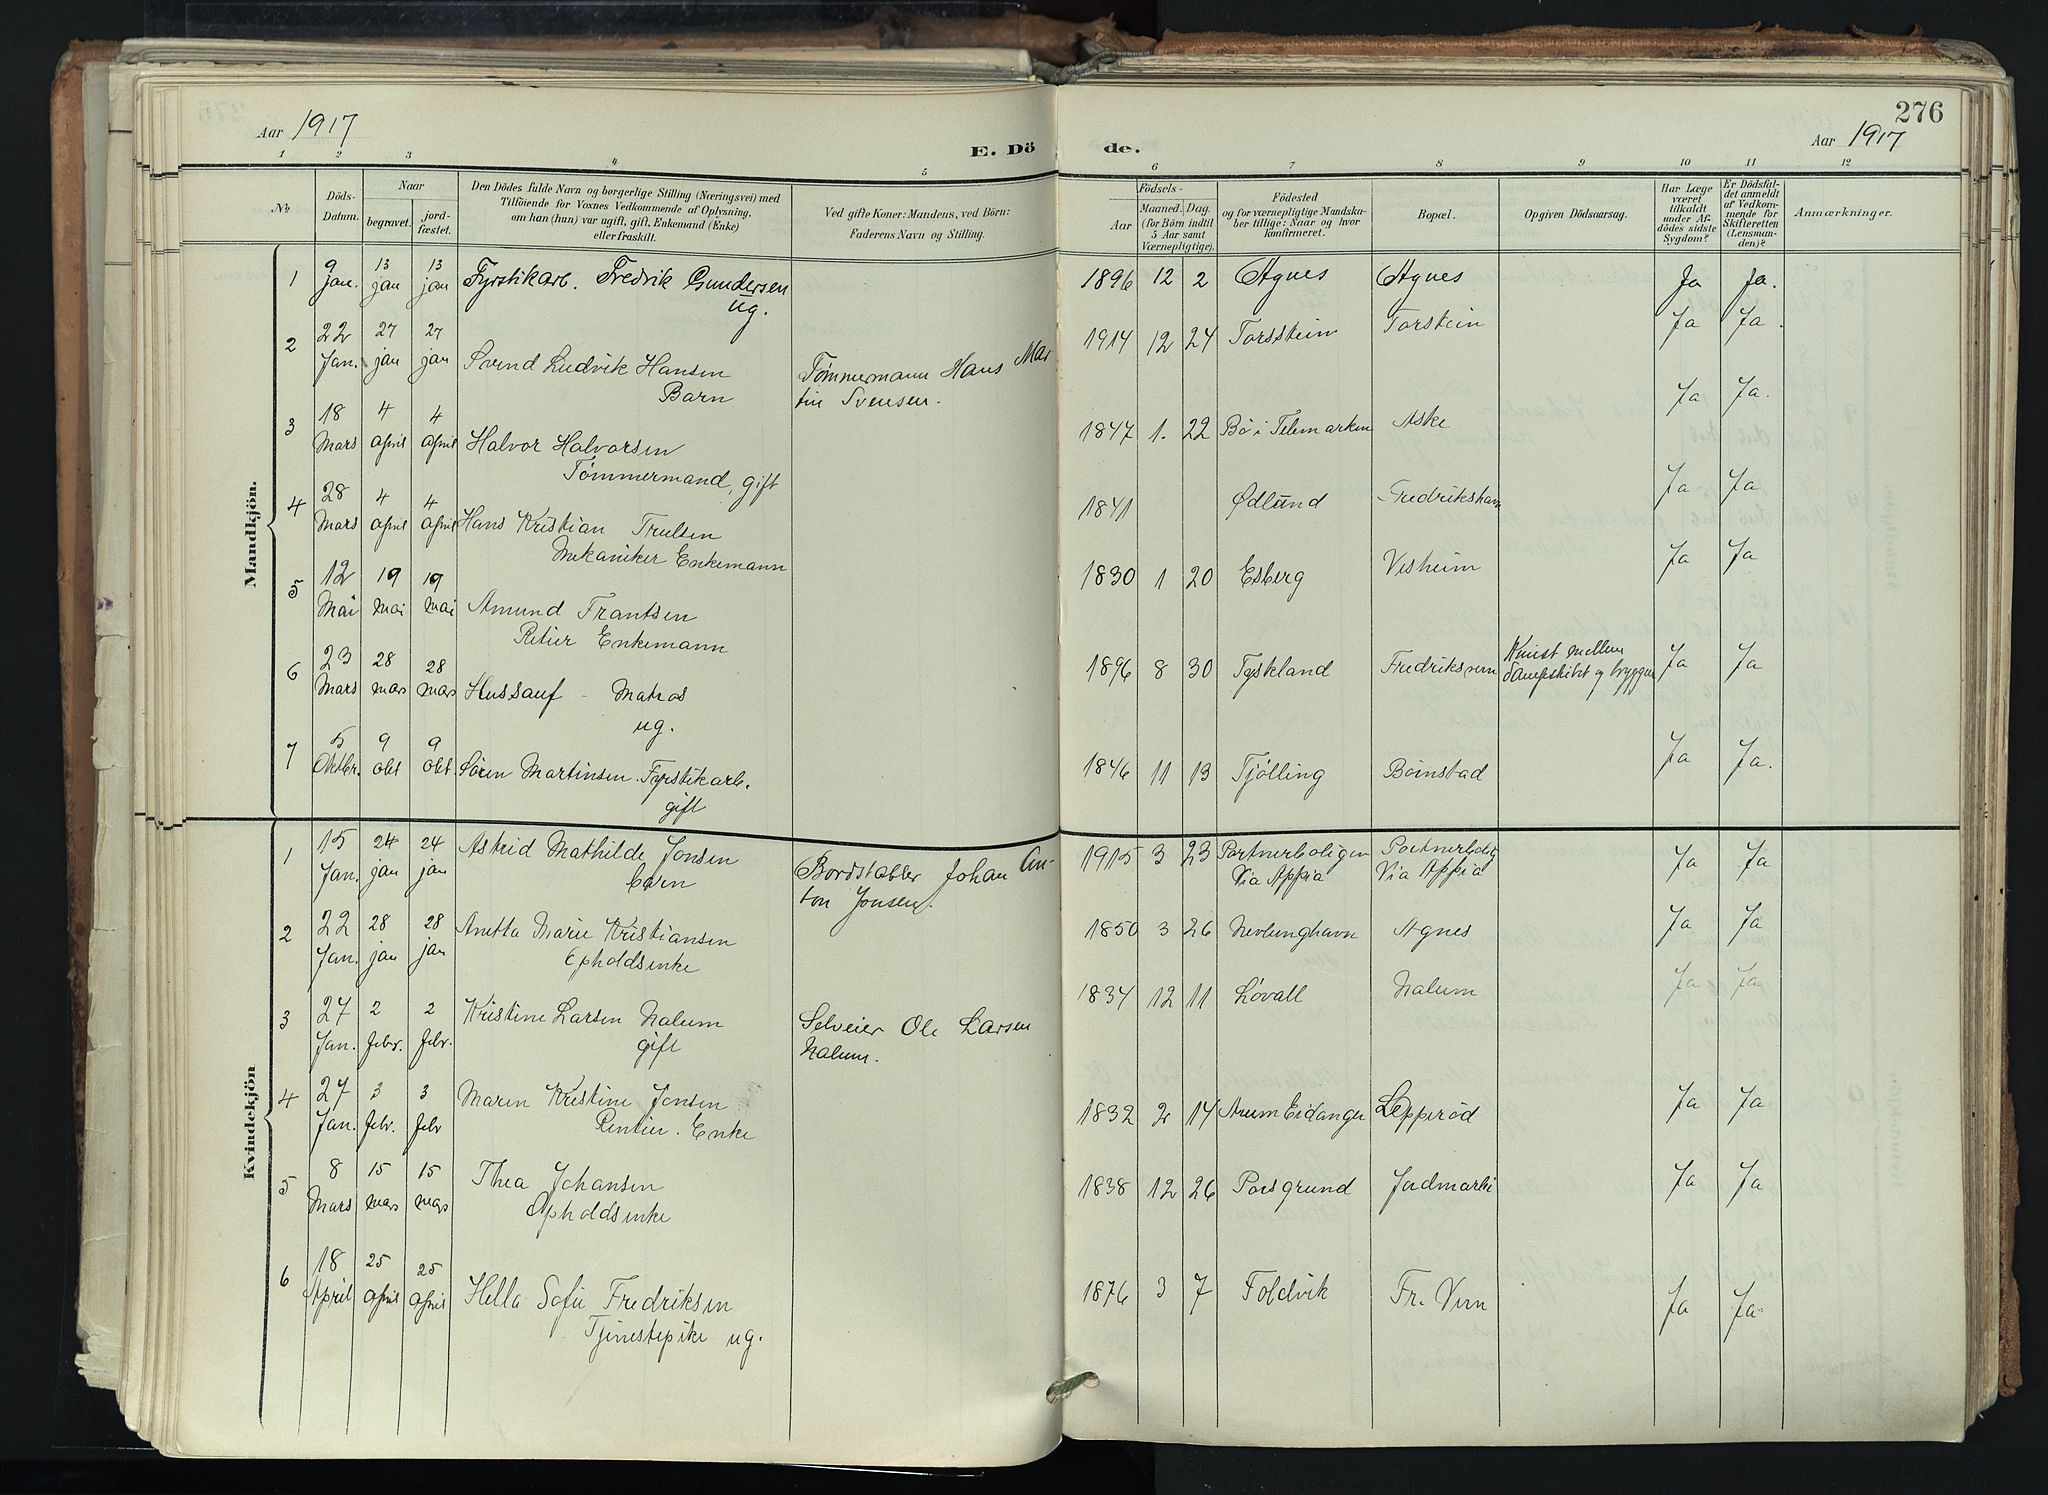 Aar 1917
E. Dö
de.
276
Aar 1917
1 2 3 4 5 6 7 8 9 10 11 12
No.
Döds-
Datum.
Naar
begravet.
jord-
fæstet.
Den Dödes fulde Navn og borgerlige Stilling (Næringsvei) med
Tilföiende for Voxnes Vedkommende af Oplysning,
om han (hun) var ugift, gift, Enkemand (Enke)
eller fraskilt.
Ved gifte Koner: Mandens, ved Börn:
Faderens Navn og Stilling.
Födsels-
Aar
Maaned. Dag.
(for Börn indtil
5 Aar samt
Værnepligtige).
Födested
og for værnepligtige Mandska-
ber tillige: Naar og hvor
konfirmeret.
Bopæl.
Opgiven Dödsaarsag.
Har Læge
været
tilkaldt
under Af-
dödes sidste
Sygdom?
Er Dödsfal-
det anmeldt
af Vedkom-
mende for
Skifteretten
(Lensman-
den)?
Anmærkninger.
Mandkjön.
1 9 Jan. 13 jan 13 jan Fyrstikarb. Fredrik Gundersen 1896 12 2 Agnes Agnes Ja Ja.
ug.
2 22 Jan. 27 jan 27 jan Svend Ludvik Hansen Tømmermann Hans Mar 1914 12 24 Torsstein Torstein Ja Ja.
Barn tin Svensen.
3 18 Mars 4 April 4 April Halvor Halvorsen 1847 1. 22 Bø i Telemarken Aske Ja Ja.
Tømmermand, gift
4 28 Mars 4 April 4 April Hans Kristian Trulsen 1841 Ødlund Fredrikshavn Ja Ja
Mekaniker Enkemann
5 12 Mai 19 mai 19 mai Amund Frantsen 1830 1 20 Esberg Visheim Ja Ja
Retier Enkemann
6 23 Mars 28 mars 28 mars Hussauf - Matros 1896 8 30 Tyskland Fredriksvern Knust mellem Dampskibet og bryggen Ja Ja
ug.
7 5 Oktbr. 9 okt 9 okt. Søren Martinsen. Fyrstikarb. 1846 11 13 Tjølling Bønstad Ja Ja.
gift
Kvindekjön
1 15 Jan. 24 jan 24 jan Astrid Mathilde Jonsen Bordstabler Johan An- 1915 3 23 Portnerboligen Portnerbolig Ja Ja
barn ton Jonsen. Via Appia Via Appia
2 22 Jan. 28 jan 28 jan Anetta Marie Kristiansen 1850 3 26 Nevlunghavn Agnes Ja Ja
Opholdsenke
3 27 Jan. 2 febr. 2 febr. Kristine Larsen Nalum Selveier Ole Larsen 1834 12 11 Løvall Nalum Ja Ja
gift Nalum.
4 27 Jan. 3 febr. 3 febr Maren Kristine Jonsen 1832 2 14 Eidanger Lepperød Ja Ja
Rentier. Enke
5 8 Mars 15 mars 15 mars Thea Johansen 1838 12 26 Porsgrund Jordmarki Ja Ja
Opholdsenke
6 18 April 25 April 25 April Hella Sofie Fredriksen 1876 3 7 Foldvik Fr. Vern Ja Ja
Tjenestepike ug.